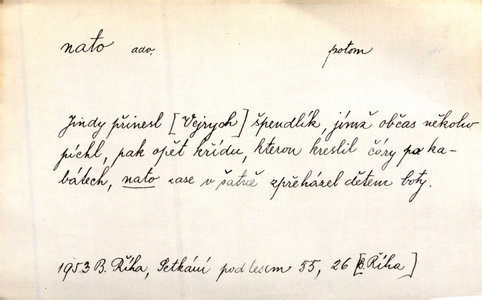 nato adv. potom
Jindy přinesl [Vejrych] špendlík, jímž občas někoho
píchl, pak opět křídu, kterou kreslil čáry po ka-
bátech, nato zase v šatně zpřeházel dětem boty.
1953 B. Říha, Setkání pod lesem 55, 26 [B. Říha]